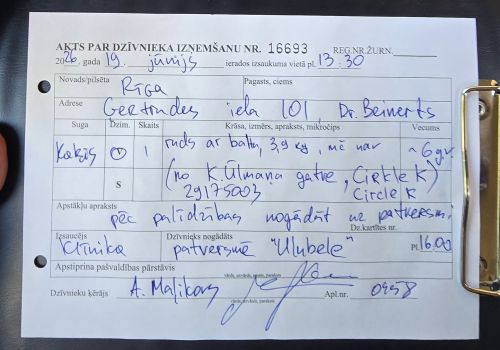 AKTS PAR DZĪVNIEKA IZŅEMŠANU NR. 16693 REG.NR.ŽURN.
2026. gada 19. jūnijs ierados izsaukuma vietā pl. 13:30
Novads/pilsēta Rīga Pagasts, ciems
Adrese Gertrudes iela 101, Dr. Beinerts
Suga Dzim. Skaits Krāsa, izmērs, apraksts, mikročips Vecums
Kaķis V 1 ruds ar baltu, 3,9 kg, mč nav ~6 g.v.
S (no K. Ulmaņa gatve, Cirkle K)
29175003 Circle K
Apstākļu apraksts pēc palīdzības nogādāt uz patversm.
Dz.kartītes nr.
Izsaucējs Klīnika Dzīvnieks nogādāts patversmē "Ulubele" Pl. 16.00
Apstiprina pašvaldības pārstāvis
vārds, uzvārds, paraksts
Dzīvnieku ķērājs A. Maļikovs Apl.nr. 0458
vārds, uzvārds, paraksts